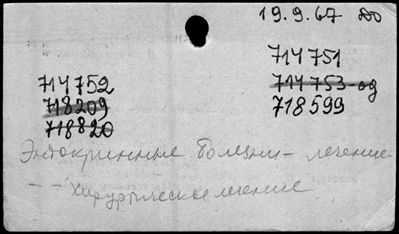 19.9.67 До
714751
714752
714753-од
718209
718599
718820
Эндокринные болезни - лечение
- - хирургическое лечение